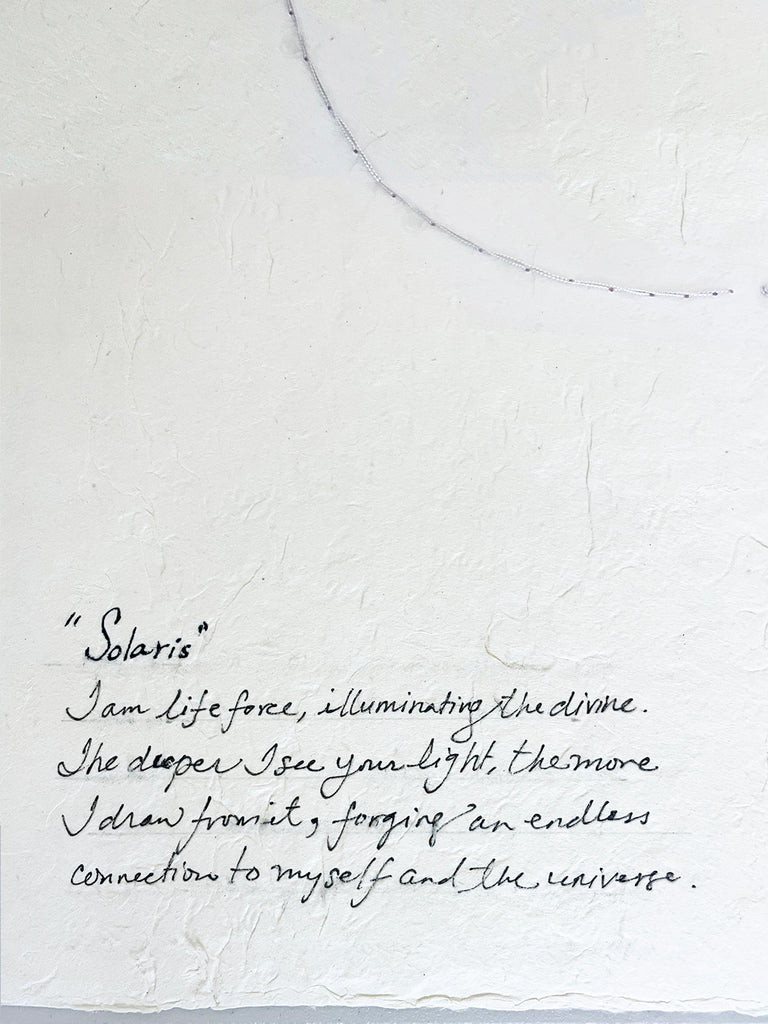 "Solaris"
I am life force, illuminating the divine.
The deeper I see your light, the more
I draw from it, forging an endless
connection to myself and the universe.